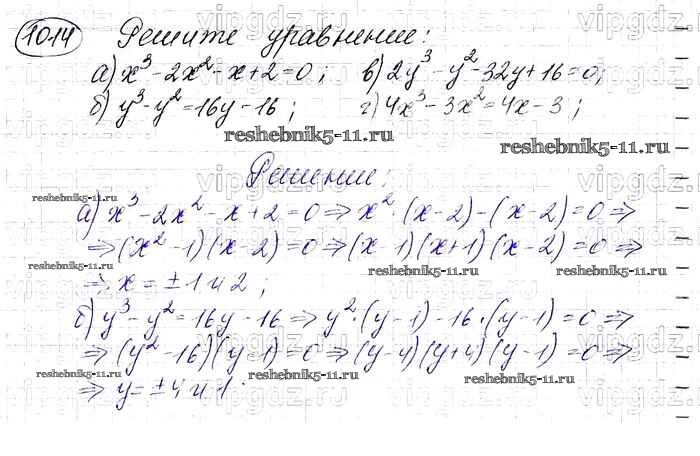 1014 Решите уравнение:
а) x³ - 2x² - x + 2 = 0; в) 2y³ - y² - 32y + 16 = 0;
б) y³ - y² = 16y - 16; г) 4x³ - 3x² = 4x - 3;
reshebnik5-11.ru reshebnik5-11.ru
Решение:
reshebnik5-11.ru
а) x³ - 2x² - x + 2 = 0 ⇒ x² · (x - 2) - (x - 2) = 0 ⇒
⇒ (x² - 1)(x - 2) = 0 ⇒ (x - 1)(x + 1)(x - 2) = 0 ⇒
reshebnik5-11.ru reshebnik5-11.ru
⇒ x = ±1 и 2;
б) y³ - y² = 16y - 16 ⇒ y² · (y - 1) - 16 · (y - 1) = 0 ⇒
⇒ (y² - 16)(y - 1) = 0 ⇒ (y - 4)(y + 4)(y - 1) = 0 ⇒
reshebnik5-11.ru reshebnik5-11.ru
⇒ y = ±4 и 1.